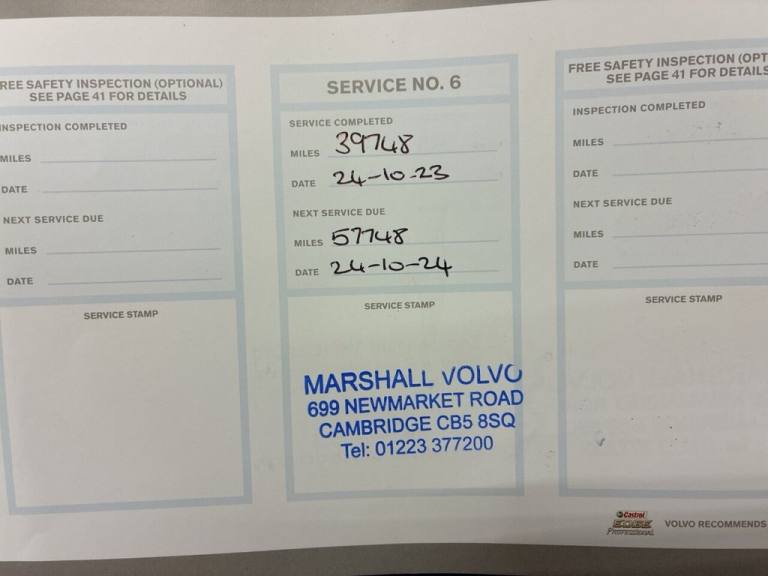 REE SAFETY INSPECTION (OPTIONAL)
SEE PAGE 41 FOR DETAILS
INSPECTION COMPLETED
MILES
DATE
NEXT SERVICE DUE
MILES
DATE
SERVICE STAMP
SERVICE NO. 6
SERVICE COMPLETED
MILES 39748
DATE 24-10-23
NEXT SERVICE DUE
MILES 57748
DATE 24-10-24
SERVICE STAMP
MARSHALL VOLVO
699 NEWMARKET ROAD
CAMBRIDGE CB5 8SQ
Tel: 01223 377200
FREE SAFETY INSPECTION (OPT
SEE PAGE 41 FOR DETAILS
INSPECTION COMPLETED
MILES
DATE
NEXT SERVICE DUE
MILES
DATE
SERVICE STAMP
Castrol
EDGE
Professional
VOLVO RECOMMENDS